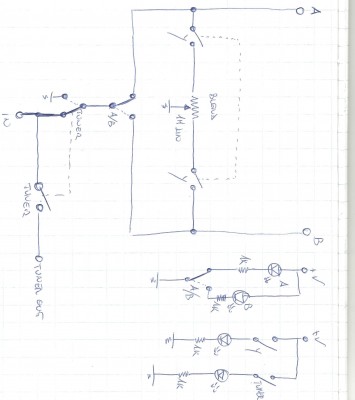 A
Y
BLEND
1M LIN
Y
B
A/B
TUNER
IN
TUNER
TUNER OUT
+V
A
1K
B
1K
A/B
+V
Y
1K
TUNER
1K